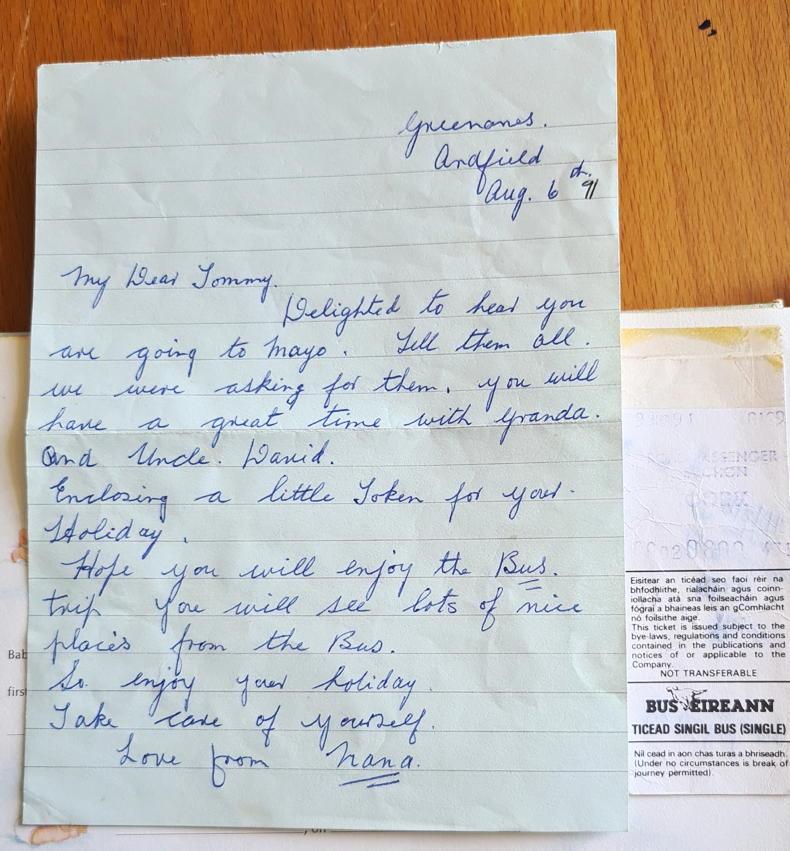 Greenanes.
Ardfield
Aug. 6th. 91
My Dear Tommy.
Delighted to hear you
are going to Mayo. Tell them all.
we were asking for them. you will
have a great time with Granda.
and Uncle. David.
Enclosing a little Token for your.
Holiday.
Hope you will enjoy the Bus.
trip you will see lots of nice
places from the Bus.
So. enjoy your holiday.
Take care of yourself.
Love from Nana.
Bab
first
Eisitear an ticéad seo faoi réir na
bhfodhlithe, rialachán agus coinn-
iollacha atá sna foilseacháin agus
fógraí a bhaineas leis an gComhlacht
nó foilsithe aige.
This ticket is issued subject to the
bye-laws, regulations and conditions
contained in the publications and
notices of or applicable to the
Company.
NOT TRANSFERABLE
BUS EIREANN
TICEAD SINGIL BUS (SINGLE)
Nil cead in aon chas turas a bhriseadh.
(Under no circumstances is break of
journey permitted).